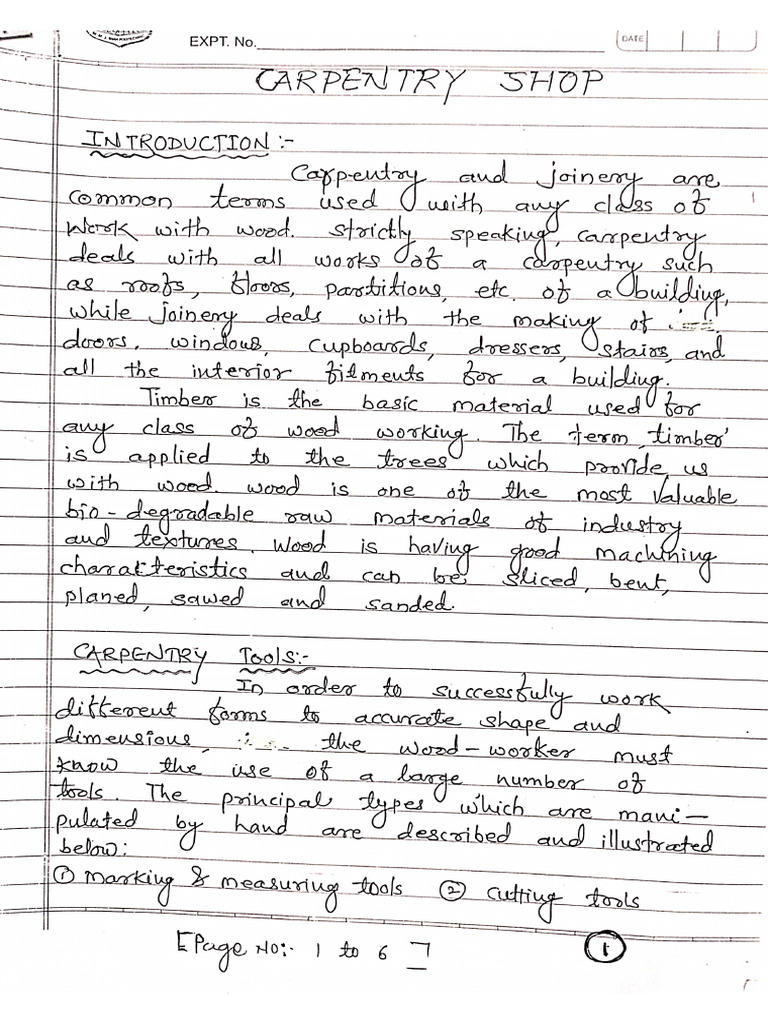 EXPT. No.
DATE
CARPENTRY SHOP
INTRODUCTION :-
Carpentry and joinery are
common terms used with any class of
work with wood. strictly speaking, carpentry
deals with all works of a carpentry such
as roofs, floors, partitions, etc. of a building,
while joinery deals with the making of
doors. windows, cupboards, dressers, stairs, and
all the interior fitments for a building.
Timber is the basic material used for
any class of wood working. The term ,timber'
is applied to the trees which provide us
with wood. wood is one of the most valuable
bio-degradable raw materials of industry
and textures. Wood is having good machining
characteristics and can be sliced, bent,
planed, sawed and sanded.
CARPENTRY TOOLS:-
In order to successfully work
different forms to accurate shape and
dimensions, the wood-worker must
know the use of a large number of
tools. The principal types which are mani-
pulated by hand are described and illustrated
below:
① marking & measuring tools ② cutting tools
[Page No:- 1 to 6 ]
1